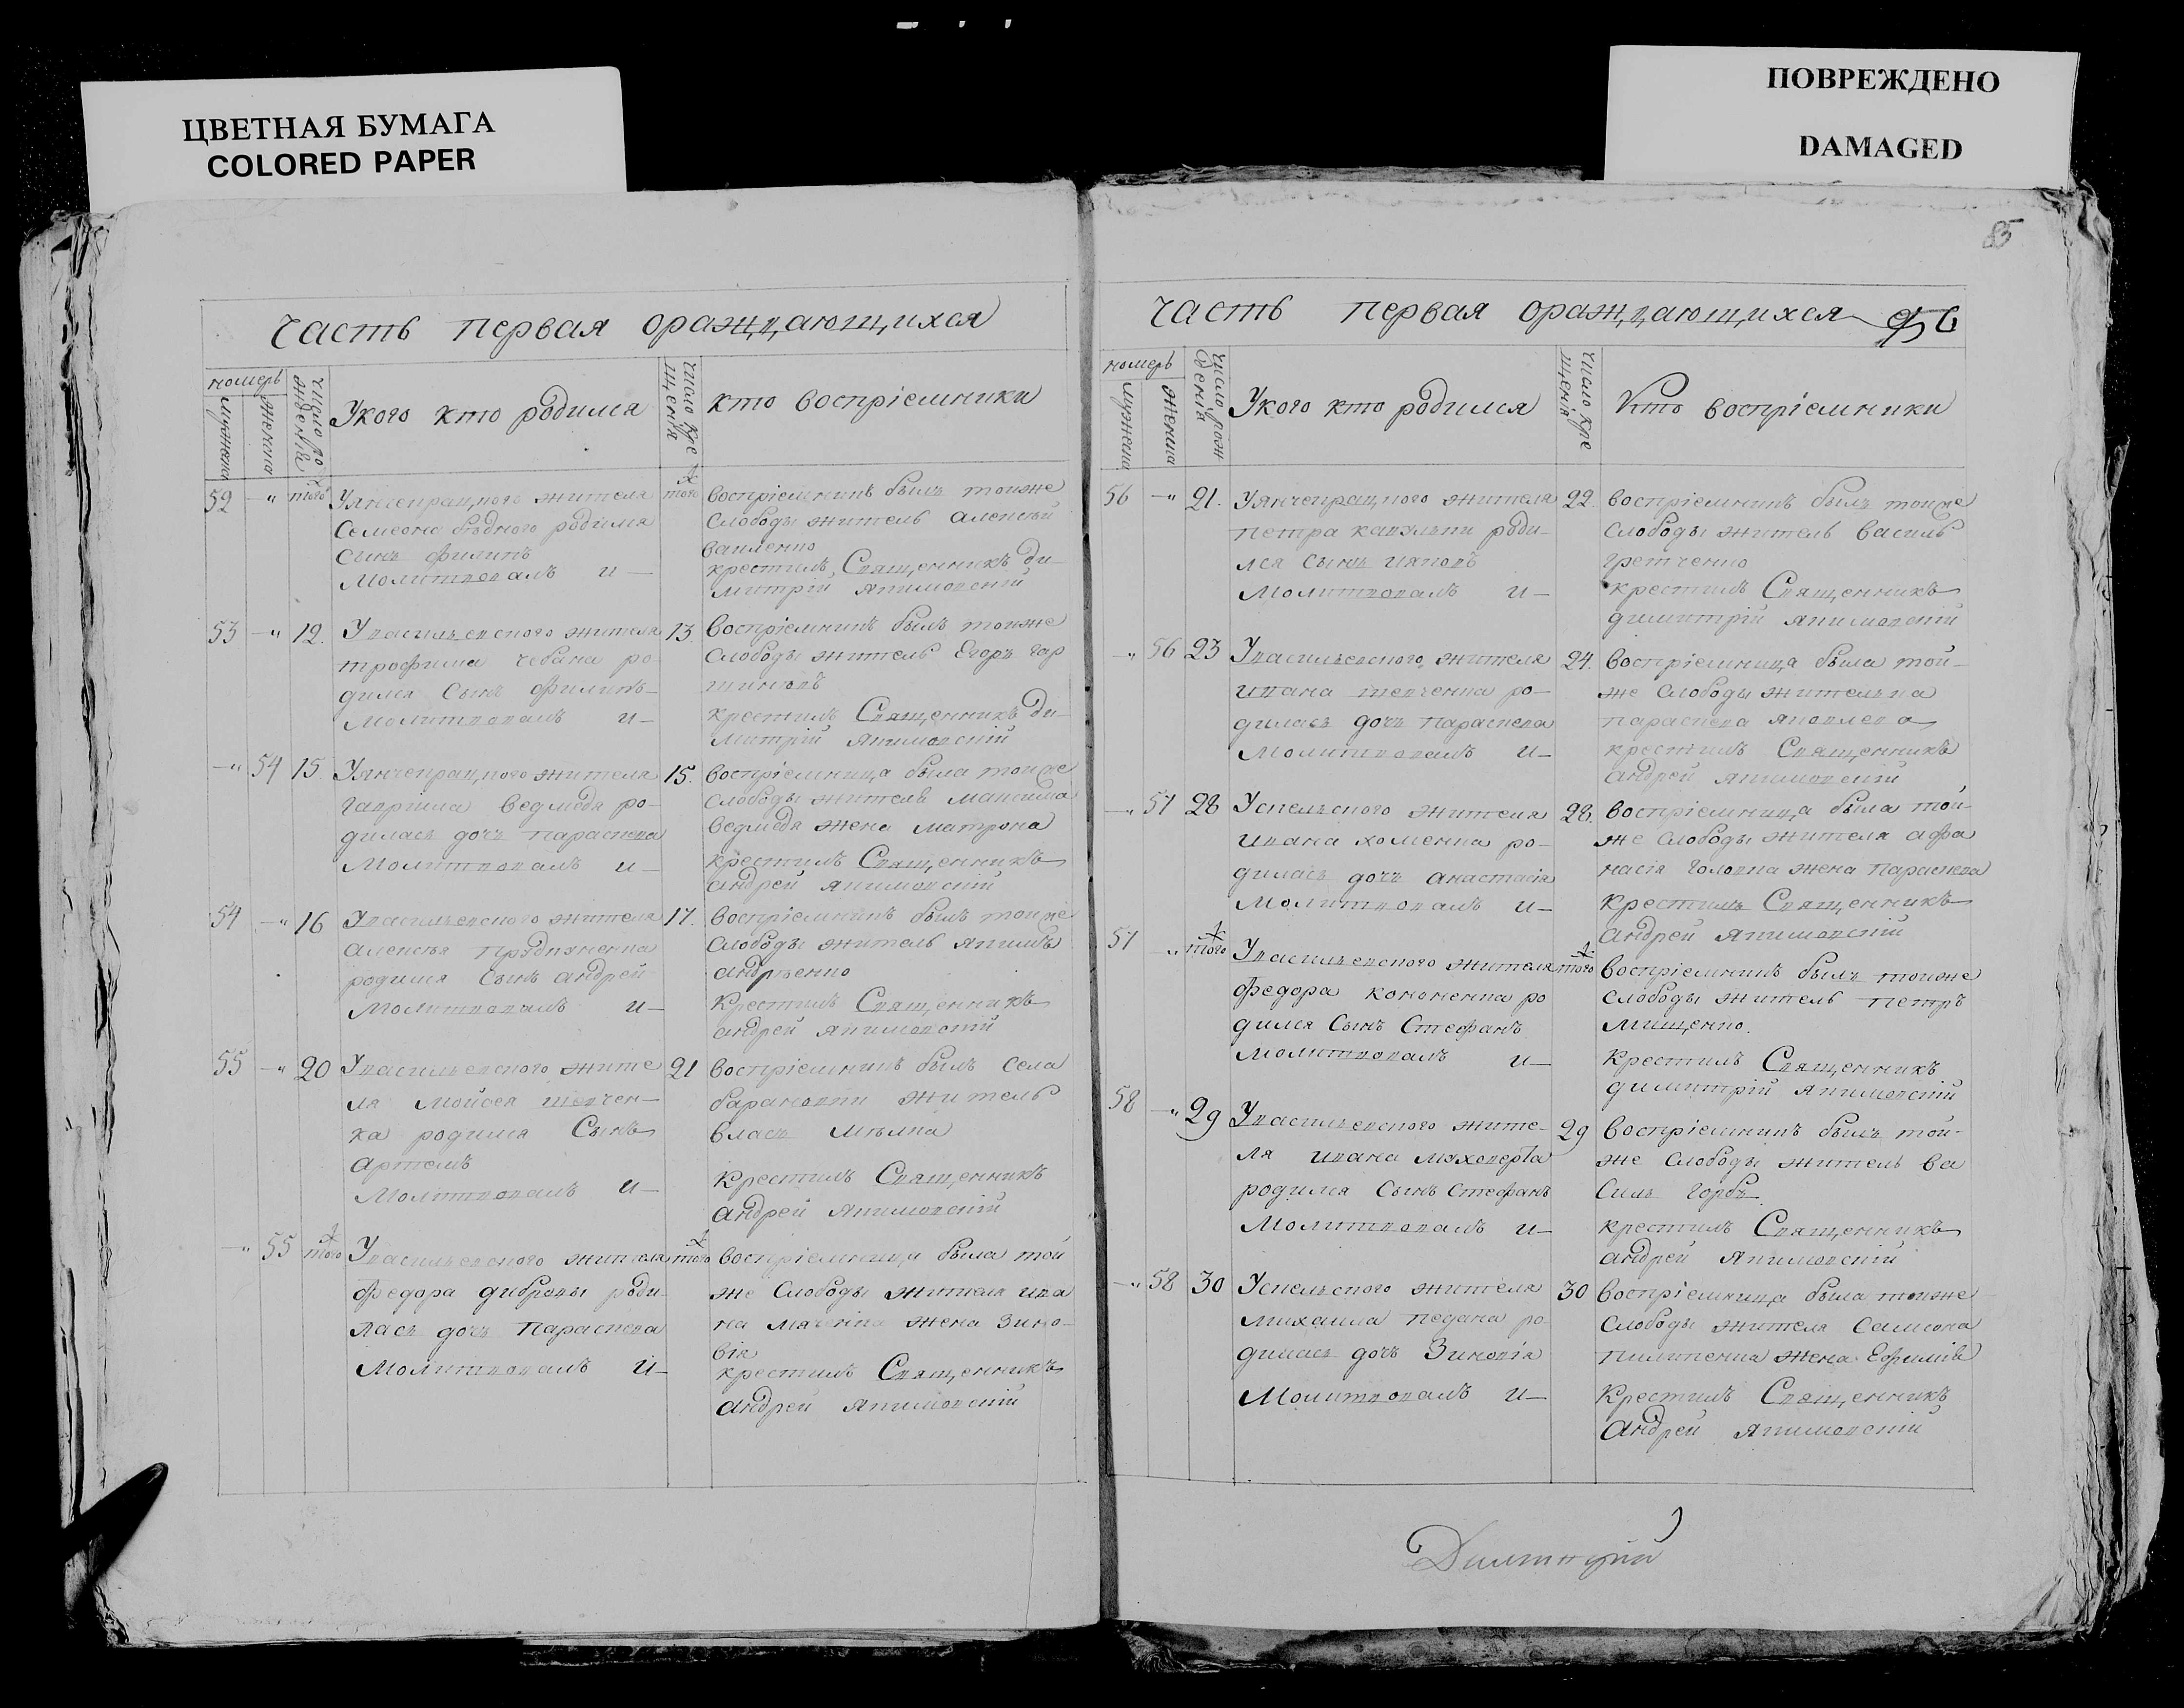 ЦВЕТНАЯ БУМАГА
COLORED PAPER
ПОВРЕЖДЕНО
DAMAGED
85
часть первая ораждающихся
номеръ
мужеска
женска
число рождения
Укого кто родился
число крещения
кто воспріемники
52 — " того
Уянчекрацкого жителя
Семеона бѣдного родился
сынъ филипъ
молитвовалъ и —
того
воспріемникъ былъ тоиже
слободы житель алексѣй
вакленко
крестилъ Священникъ ди-
митрій якимовскій
53 — " 12.
Увасильевского жителя
трофима чебана ро-
дился сынъ филипъ
молитвовалъ и —
13.
воспріемникъ былъ тоиже
слободы житель Егоръ гар
шиновъ
крестилъ Священникъ ди-
митрій якимовскій
— " 54 15.
Уянчекрацкого жителя
гавріила ведмедя ро-
дилась дочь параскева
молитвовалъ и —
15.
воспріемница была тоиже
слободы жителя максима
ведмедя жена матрона
крестилъ Священникъ
андрей якимовскій
54 — " 16
Увасильевского жителя
алексѣя
родился сынъ андрей
молитвовалъ и —
17.
воспріемникъ былъ тоиже
слободы житель якимъ
андрѣенко
крестилъ Священникъ
андрей якимовскій
55 — " 20
Увасильевского жите
ля мойсея шевчен-
ка родился Сынъ
артемъ
молитвовалъ и —
21
воспріемникъ былъ села
барановки житель
власъ
крестилъ Священникъ
андрей якимовскій
— " 55 того
Увасильевского жителя
федора дибровы роди-
лась дочь параскева
молитвовалъ и —
того
воспріемница была той
же слободы жителя ива
на жена зино-
вія
крестилъ Священникъ
андрей якимовскій
часть первая ораждающихся
номеръ
мужеска
женска
число рождения
Укого кто родился
число крещенія
Кто воспріемники
56 — " 21.
Уянчекрацкого жителя
петра кавульки роди-
лся сынъ іяковъ
молитвовалъ и —
22.
воспріемникъ былъ тоиже
слободы житель василь
гретченко
крестилъ Священникъ
димитрій якимовскій
— " 56 23
Увасильевского жителя
ивана шевченка ро-
дилась дочь параскева
молитвовалъ и —
24.
воспріемница была той-
же слободы жителька
параскева яковлева
крестилъ Священникъ
андрей якимовскій
— " 57 28
Успельского жителя
ивана хоменка ро-
дилась дочь анастасія
молитвовалъ и —
28.
воспріемница была той-
же слободы жителя афа
насія головка жена параскева
крестилъ Священникъ
андрей якимовскій
57 " того
Увасильевского жителя
федора кононенка ро
дился сынъ Стефанъ
молитвовалъ и —
того
воспріемникъ былъ тоиже
слободы житель петръ
мищенко.
крестилъ Священникъ
димитрій якимовскій
58 — " 29
Увасильевского жите-
ля ивана
родился сынъ Стефанъ
молитвовалъ и —
29
воспріемникъ былъ той-
же слободы житель ва
силь горбъ.
крестилъ Священникъ
андрей якимовскій
— " 58 30
Успельского жителя
михаила педана ро
дилась дочь Зиновія
молитвовалъ и —
30
воспріемница была тоиже
слободы жителя самсона
пилипенка жена Ефимія
Крестилъ Священникъ
андрей якимовскій
Димитрій